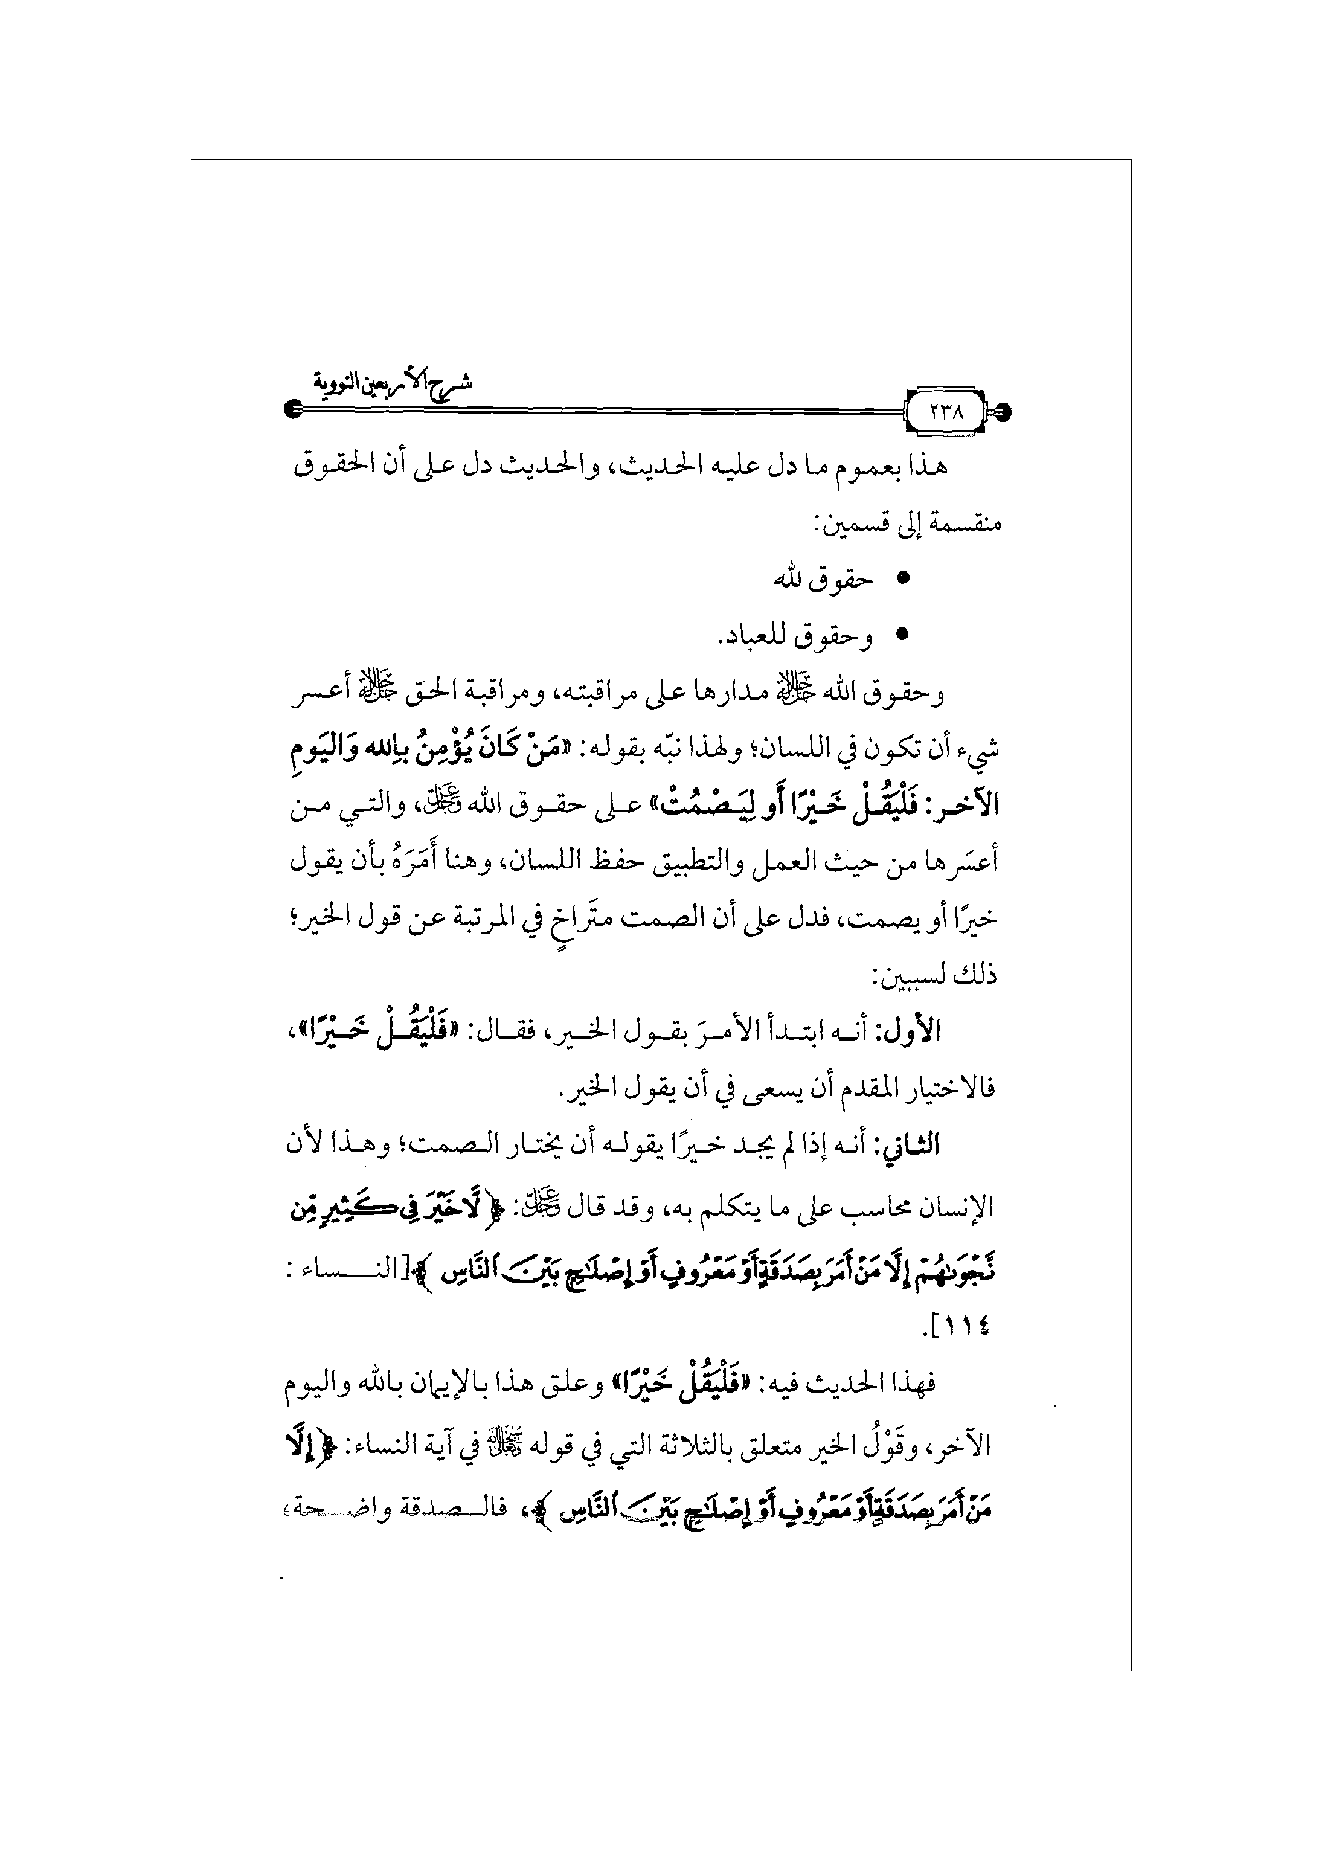 شرح الأربعين النووية
٢٣٨
هذا بعموم ما دل عليه الحديث، والحديث دل على أن الحقوق
منقسمة إلى قسمين:
● حقوق لله
● وحقوق للعباد.
وحقوق الله ﷻ مدارها على مراقبته، ومراقبة الحق ﷻ أعسر
شيء أن تكون في اللسان؛ ولهذا نبّه بقوله: «مَنْ كَانَ يُؤْمِنُ بِالله وَاليَومِ
الآخر: فَلْيَقُلْ خَيْرًا أَو لِيَصْمُتْ» على حقوق الله عز وجل، والتي من
أعسَرها من حيث العمل والتطبيق حفظ اللسان، وهنا أَمَرَهُ بأن يقول
خيرًا أو يصمت، فدل على أن الصمت متَراخٍ في المرتبة عن قول الخير؛
ذلك لسببين:
الأول: أنه ابتدأ الأمرَ بقول الخير، فقال: «فَلْيَقُلْ خَيْرًا»،
فالاختيار المقدم أن يسعى في أن يقول الخير.
الثاني: أنه إذا لم يجد خيرًا يقوله أن يختار الصمت؛ وهذا لأن
الإنسان محاسب على ما يتكلم به، وقد قال عز وجل: ﴿لَّا خَيْرَ فِي كَثِيرٍ مِّن
نَّجْوَىٰهُمْ إِلَّا مَنْ أَمَرَ بِصَدَقَةٍ أَوْ مَعْرُوفٍ أَوْ إِصْلَٰحٍ بَيْنَ ٱلنَّاسِ﴾ [النساء :
١١٤].
فهذا الحديث فيه: «فَلْيَقُلْ خَيْرًا» وعلق هذا بالإيمان بالله واليوم
الآخر، وقَوْلُ الخير متعلق بالثلاثة التي في قوله ﷻ في آية النساء: ﴿إِلَّا
مَنْ أَمَرَ بِصَدَقَةٍ أَوْ مَعْرُوفٍ أَوْ إِصْلَٰحٍ بَيْنَ ٱلنَّاسِ﴾، فالصدقة واضحة،